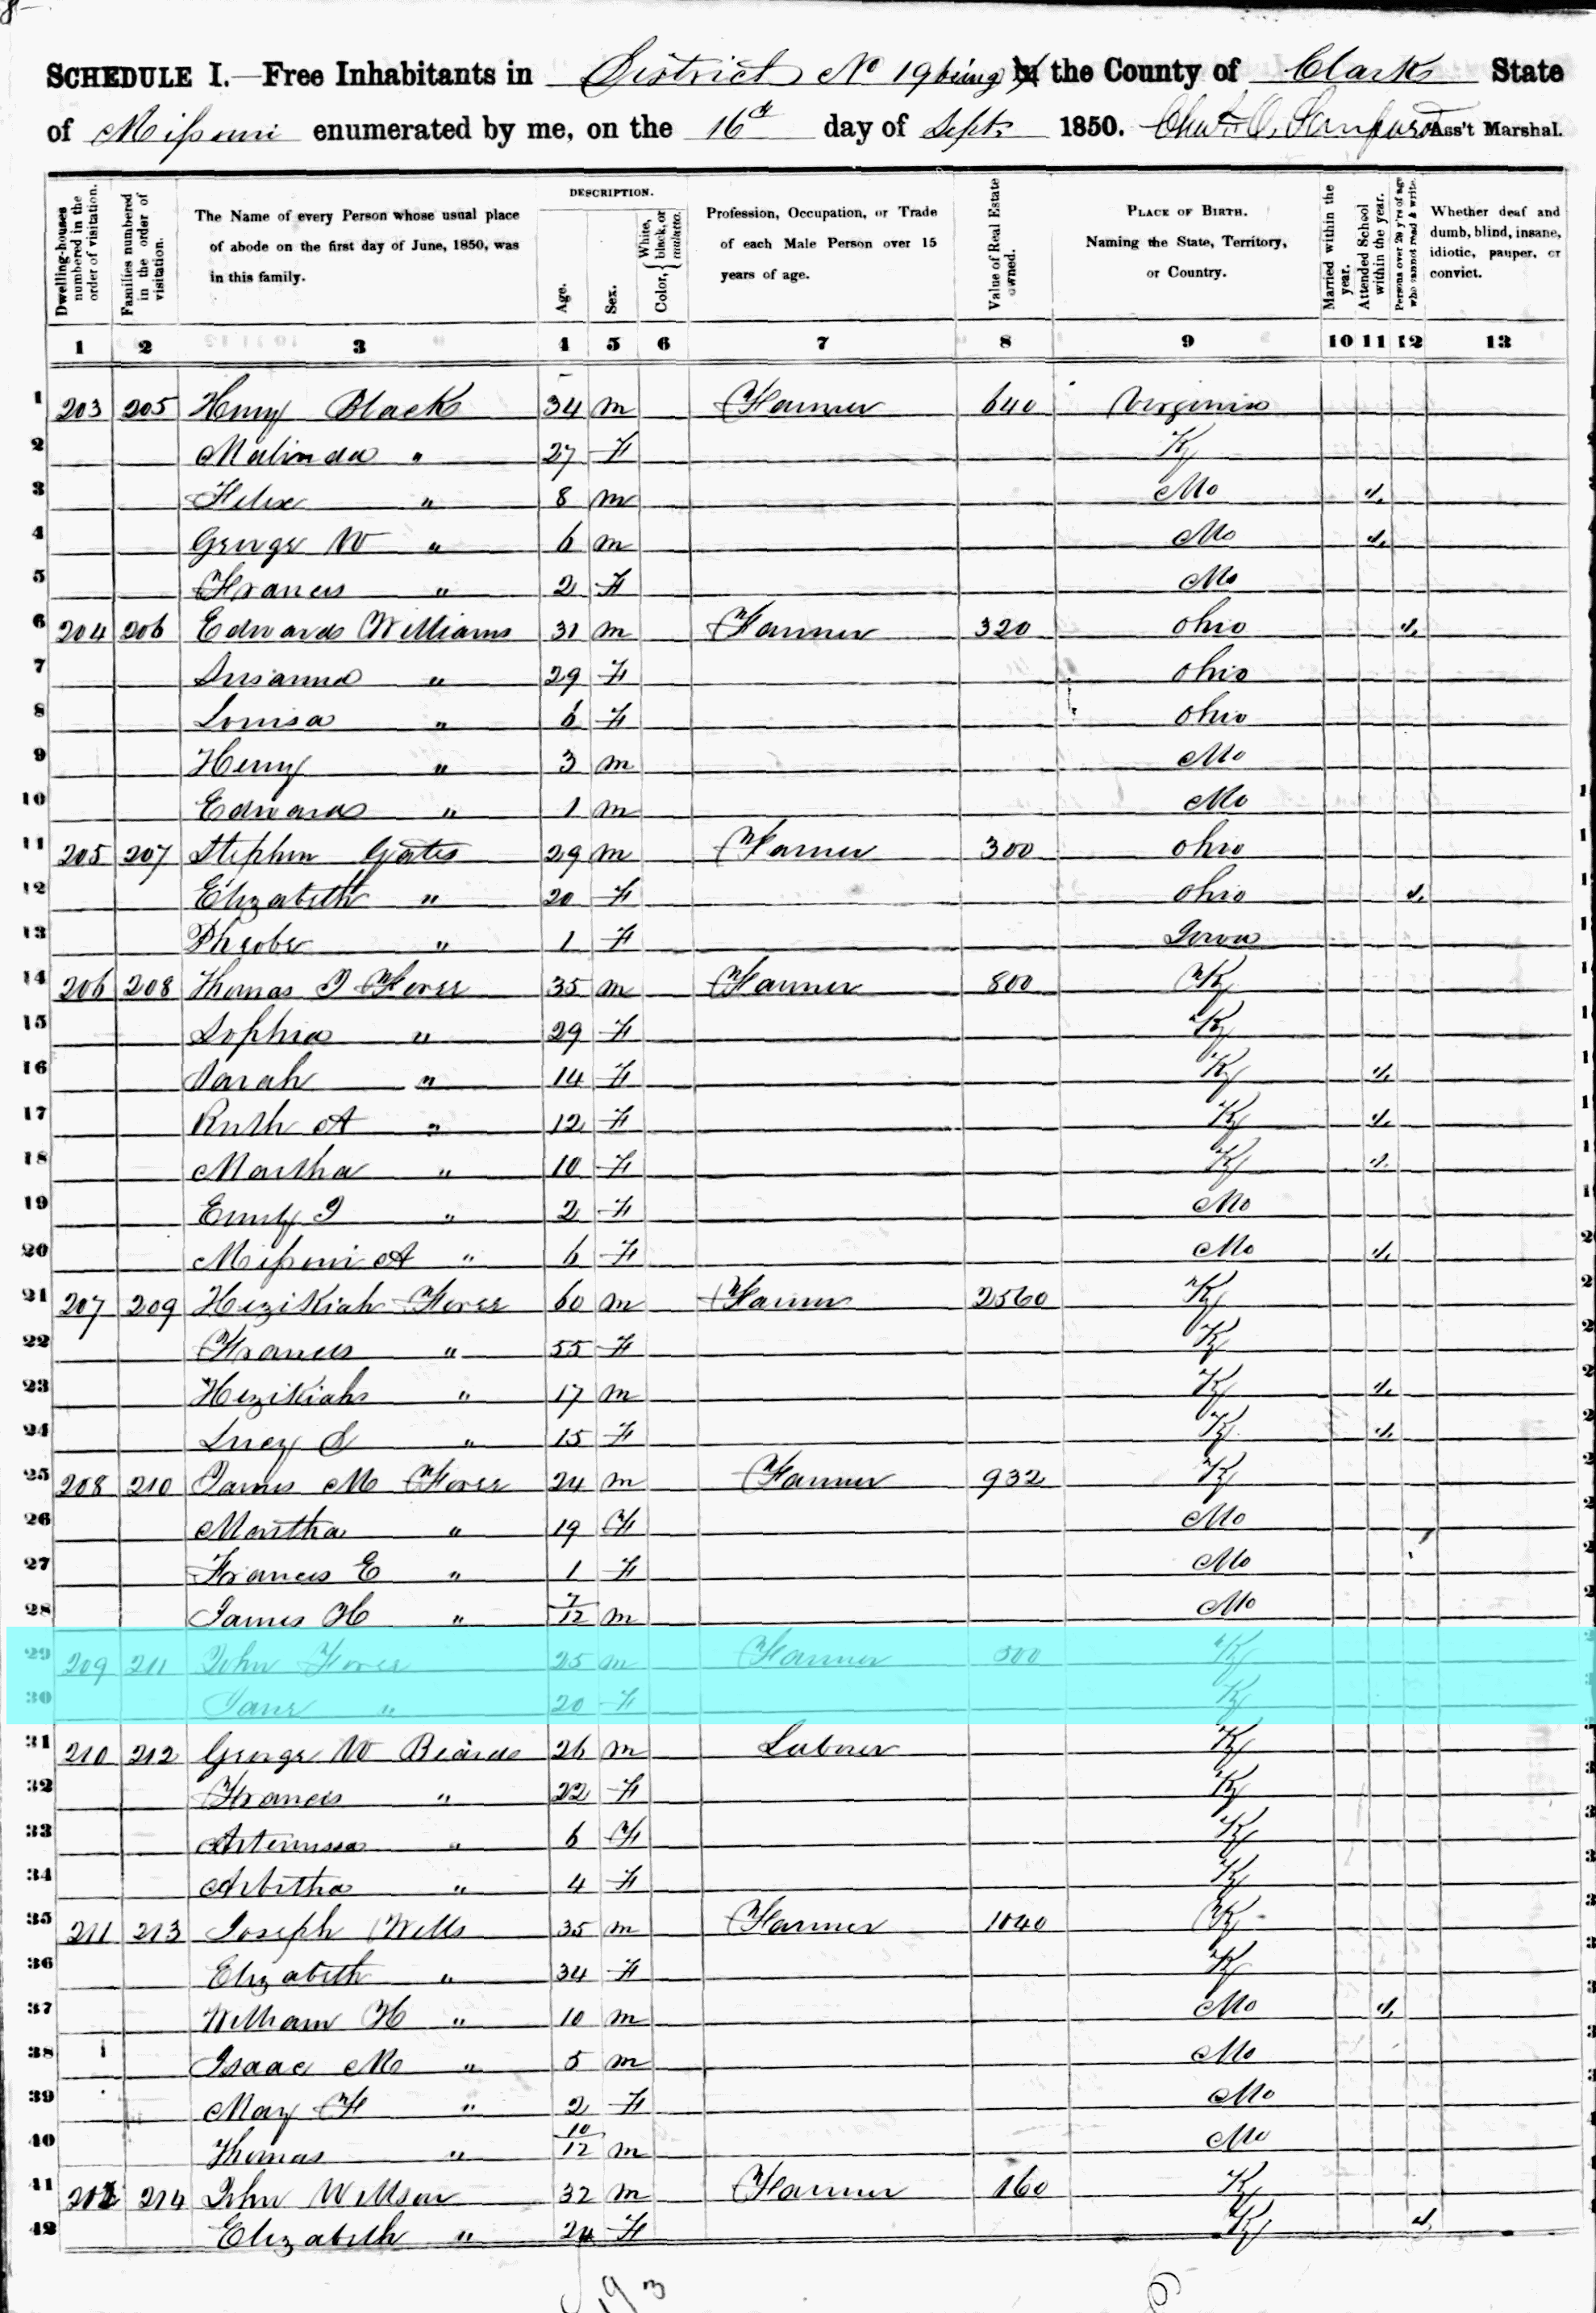 SCHEDULE I.—Free Inhabitants in District No 19 being the County of Clark State
of Missouri enumerated by me, on the 16th day of Sept. 1850. Ass't Marshal.
Dwelling-houses numbered in the order of visitation.
Families numbered in the order of visitation.
The Name of every Person whose usual place of abode on the first day of June, 1850, was in this family.
DESCRIPTION.
Age.
Sex.
Color, { White, black, or mulatto.
Profession, Occupation, or Trade of each Male Person over 15 years of age.
Value of Real Estate owned.
PLACE OF BIRTH. Naming the State, Territory, or Country.
Married within the year.
Attended School within the year.
Persons over 20 y'rs of age who cannot read & write.
Whether deaf and dumb, blind, insane, idiotic, pauper, or convict.
1 2 3 4 5 6 7 8 9 10 11 12 13
1 203 205 Henry Black 34 m Farmer 640 Virginia
2 Malinda " 27 F Ky
3 Felix " 8 m Mo 1
4 George W " 6 m Mo 1
5 Francis " 2 F Mo
6 204 206 Edward Williams 31 m Farmer 320 Ohio 1
7 Susanna " 29 F Ohio
8 Louisa " 6 F Ohio
9 Henry " 3 m Mo
10 Edward " 1 m Mo
11 205 207 Stephen Gates 29 m Farmer 300 Ohio
12 Elizabeth " 20 F Ohio 1
13 Pheobe " 1 F Iowa
14 206 208 Thomas J Foree 35 m Farmer 800 Ky
15 Sophia " 29 F Ky
16 Sarah " 14 F Ky 1
17 Ruth A " 12 F Ky 1
18 Martha " 10 F Ky 1
19 Emily J " 2 F Mo
20 Missouri A " 6 F Mo 1
21 207 209 Hezikiah Foree 60 m Farmer 2560 Ky
22 Francis " 55 F Ky
23 Hezikiah " 17 m Ky 1
24 Lucy S " 15 F Ky 1
25 208 210 James M Foree 24 m Farmer 932 Ky
26 Martha " 19 F Mo
27 Francis E " 1 F Mo
28 James H " 7/12 m Mo
29 209 211 John Foree 25 m Farmer 500 Ky
30 Jane " 20 F Ky
31 210 212 George W Beard 26 m Laborer Ky
32 Francis " 22 F Ky
33 Artemissa " 6 F Ky
34 Arbitha " 4 F Ky
35 211 213 Joseph Wells 35 m Farmer 1040 Ky
36 Elizabeth " 34 F Ky
37 William H " 10 m Mo 1
38 Isaac M " 5 m Mo
39 Mary F " 2 F Mo
40 Thomas " 10/12 m Mo
41 214 John Willson 32 m Farmer 160 Ky
42 Elizabeth " 24 F Ky 1